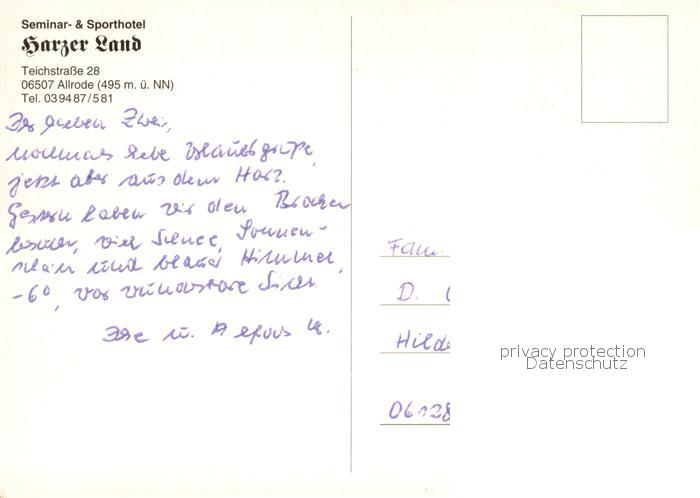 Seminar- & Sporthotel
Harzer Land
Teichstraße 28
06507 Allrode (495 m. ü. NN)
Tel. 039487/581
Ihr lieben Zwei,
nochmals liebe Urlaubsgrüße,
jetzt aber aus dem Harz.
Gestern haben wir den Brocken
viel Schnee, Sonnen-
schein und blauer Himmel,
-6°, war wunderbare Sicht.
Ilse u.
Fam.
D.
Hilde
06128
privacy protection
Datenschutz